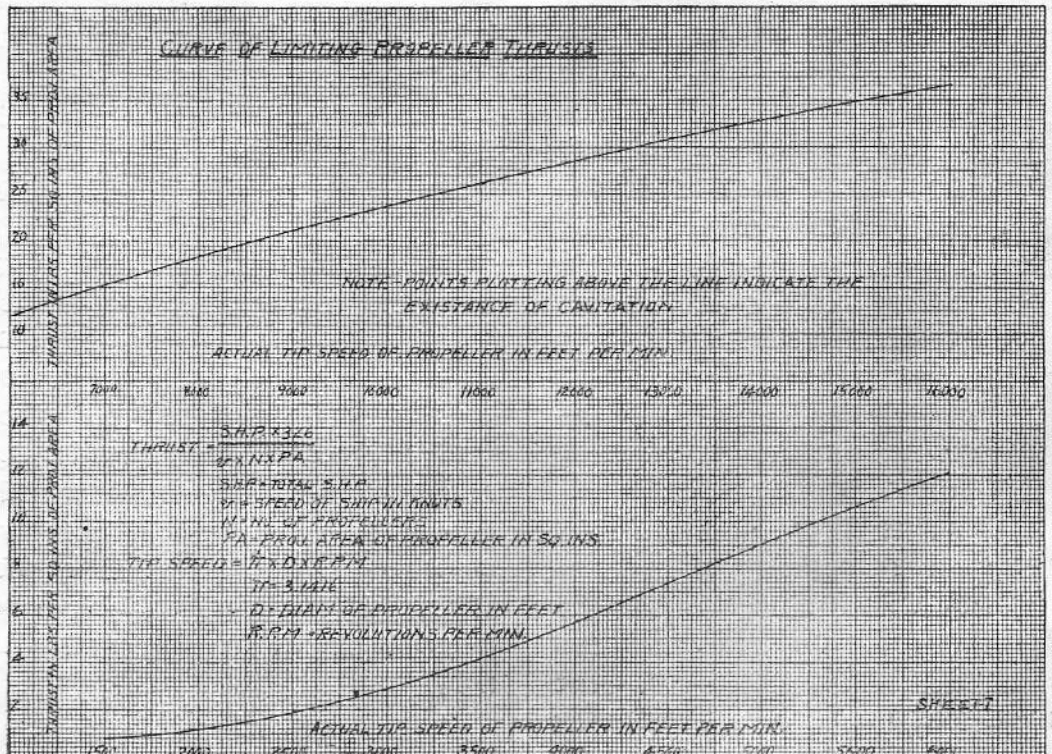 CURVE OF LIMITING PROPELLER THRUSTS
THRUST IN LBS PER SQ. INS OF PROJ. AREA
35
30
25
20
10
NOTE - POINTS PLOTTING ABOVE THE LINE INDICATE THE
EXISTANCE OF CAVITATION
ACTUAL TIP SPEED OF PROPELLER IN FEET PER MIN.
7000 8000 9000 10000 11000 12000 13000 14000 15000 16000
THRUST IN LBS PER SQ INS OF PROJ. AREA
14
12
10
8
6
4
2
THRUST = S.H.P. X 326
V X N X PA
S.H.P = TOTAL S.H.P
V = SPEED OF SHIP IN KNOTS
N = NO. OF PROPELLERS
PA = PROJ. AREA OF PROPELLER IN SQ. INS.
TIP SPEED = π X D X R.P.M
π = 3.1416
D = DIAM OF PROPELLER IN FEET
R.P.M = REVOLUTIONS PER MIN.
ACTUAL TIP SPEED OF PROPELLER IN FEET PER MIN.
SHEET-1
1500 2000 2500 3000 3500 4000 4500 5000 5500 6000